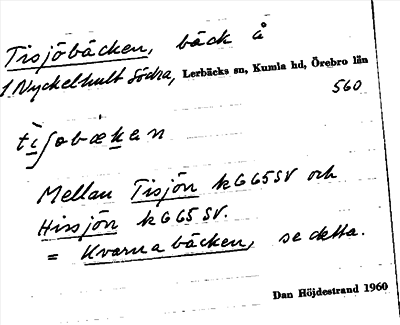 Tisjöbäcken, bäck å
1 Nyckelhult Södra, Lerbäcks sn, Kumla hd, Örebro län
560
tìʃobæken
Mellan Tisjön k665SV och
Hissjön k665SV.
= Kvarnabäcken, se detta.
Dan Höjdestrand 1960